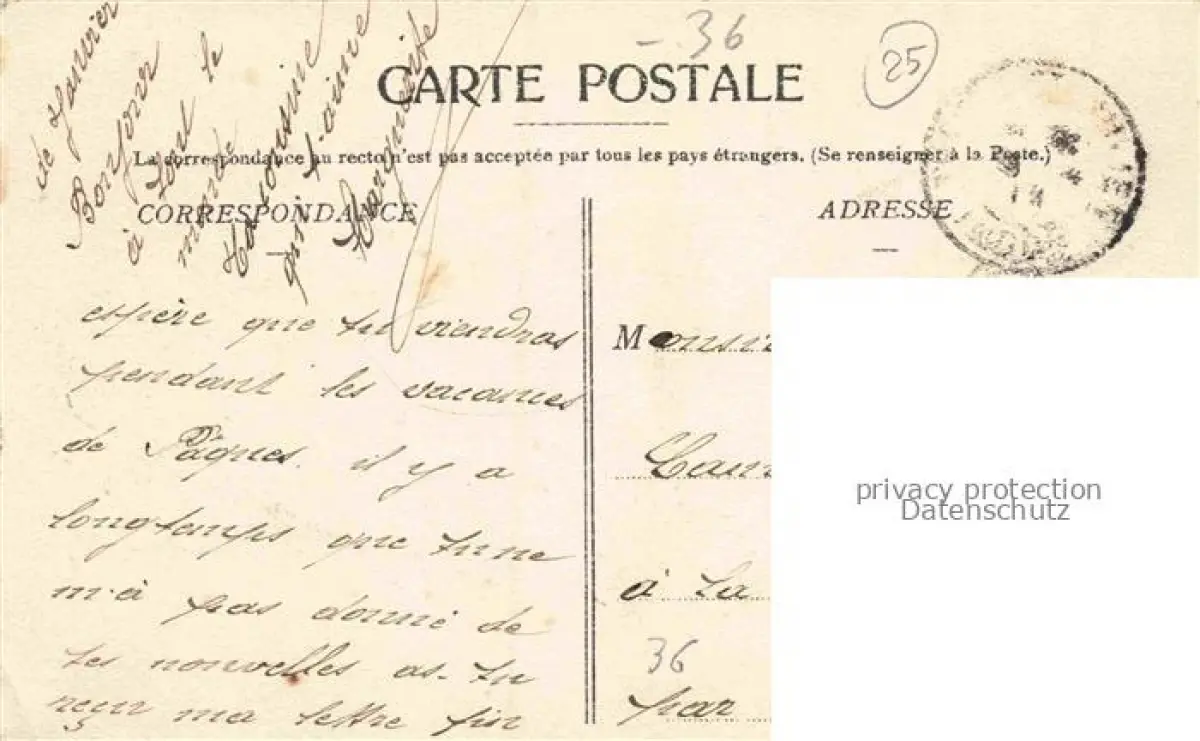 - 36
25
CARTE POSTALE
La correspondance au recto n'est pas acceptée par tous les pays étrangers. (Se renseigner à la Poste.)
CORRESPONDANCE
ADRESSE
espère que tu viendras
pendant les vacances
de Pâques. il y a
longtemps que tu ne
m'a pas donné de
tes nouvelles as-tu
reçu ma lettre fin
de Janvier
Bonjour
à tout le
monde
Ta cousine
qui t'aime
Marguerite
Monsi
à La
36
par
privacy protection
Datenschutz